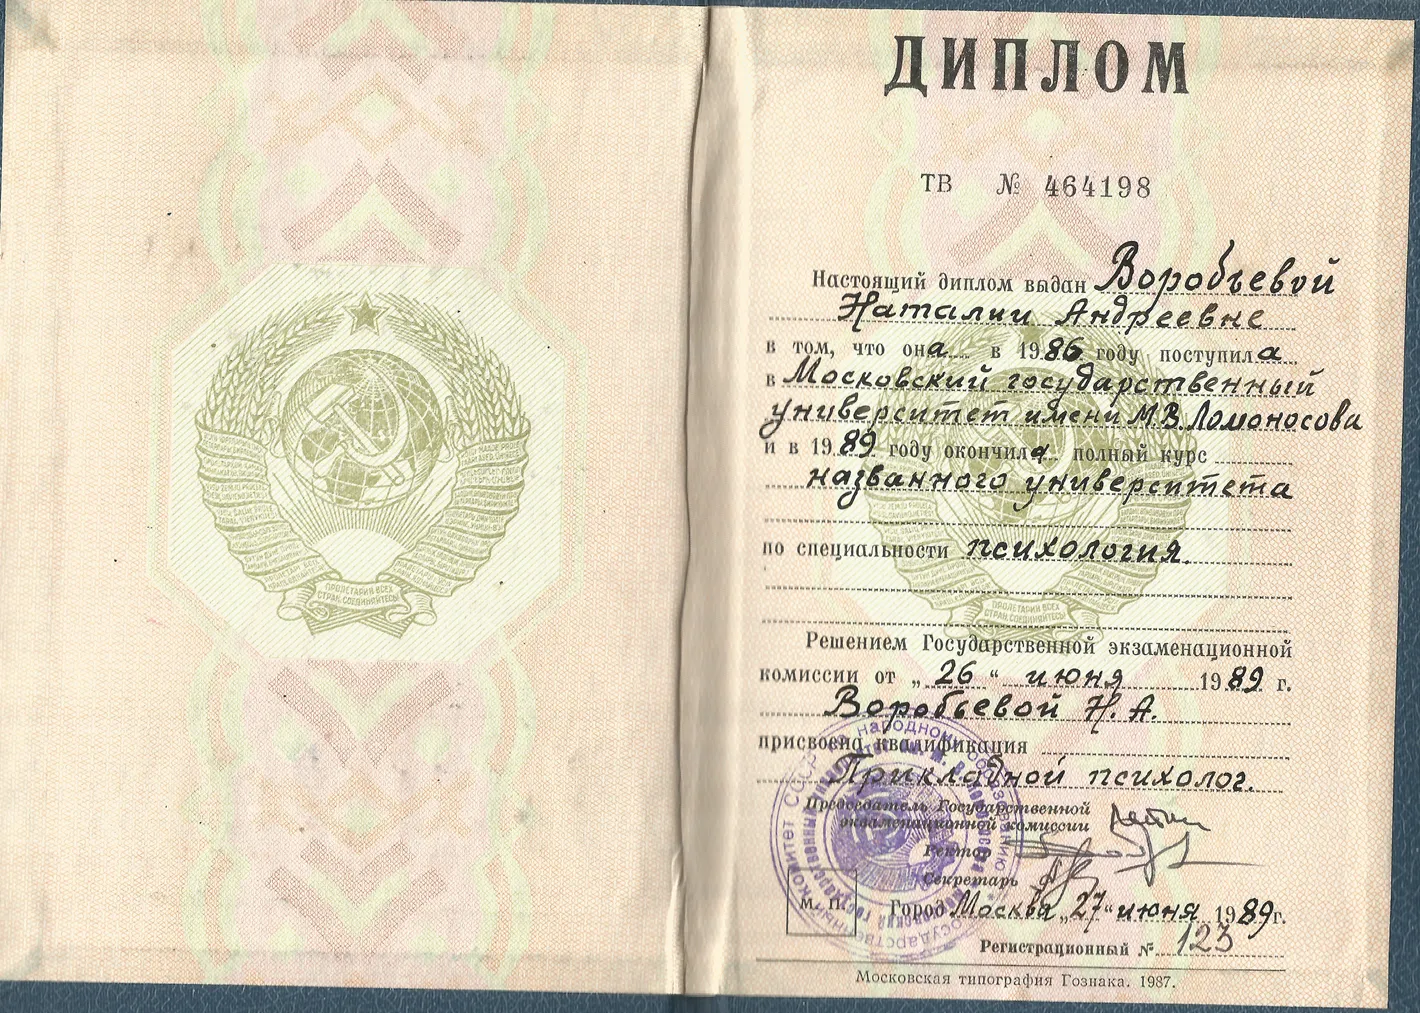 ПРОЛЕТАРИИ ВСЕХ
СТРАН, СОЕДИНЯЙТЕСЬ!
ДИПЛОМ
ТВ № 464198
Настоящий диплом выдан Воробьевой
Наталии Андреевне
в том, что она в 1986 году поступила
в Московский государственный
университет имени М.В. Ломоносова
и в 1989 году окончила полный курс
названного университета
по специальности психология.
Решением Государственной экзаменационной
комиссии от „26“ июня 1989 г.
Воробьевой Н. А.
присвоена квалификация
Прикладной психолог.
Председатель Государственной
экзаменационной комиссии
Ректор
Секретарь
М. П.
Город Москва „27“ июня 1989 г.
Регистрационный № 123
Московская типография Гознака. 1987.
ПРОЛЕТАРИИ ВСЕХ
СТРАН, СОЕДИНЯЙТЕСЬ!